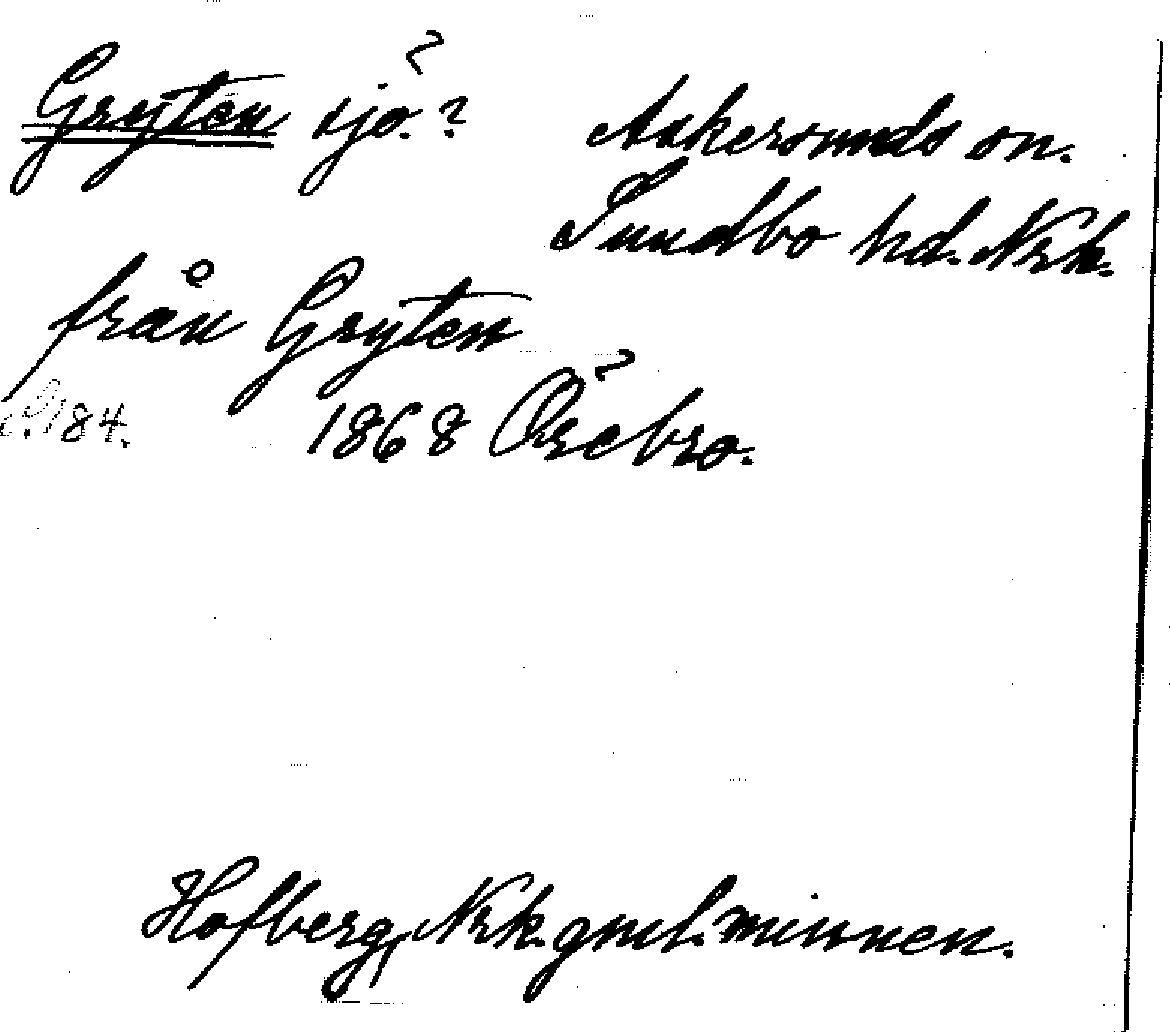 Gryten sjö? Askersunds sn.
Sundbo hd. Nrk.
från Gryten
S. 184. 1868 Örebro.
Hofberg, Nrk. gml. minnen.